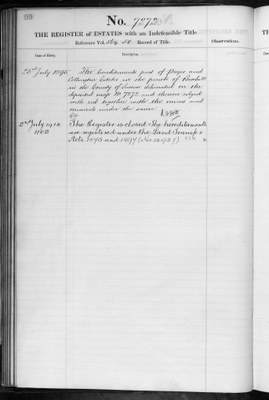 99
No. 7272
THE REGISTER of ESTATES with an Indefeasible Title.
Reference Vol. Record of Title.
Observations.
Date of Entry.
Description
July 1895 The hereditaments part of Pages and
Collington Estates in the parish of Bexhill
in the County of Sussex delineated on the
deposited map No 7272 and thereon edged
with red together with the mines and
minerals under the same.
2nd July 1912
The Register is closed. The hereditaments
are registered under the Land Transfer
Acts 1875 and 1897